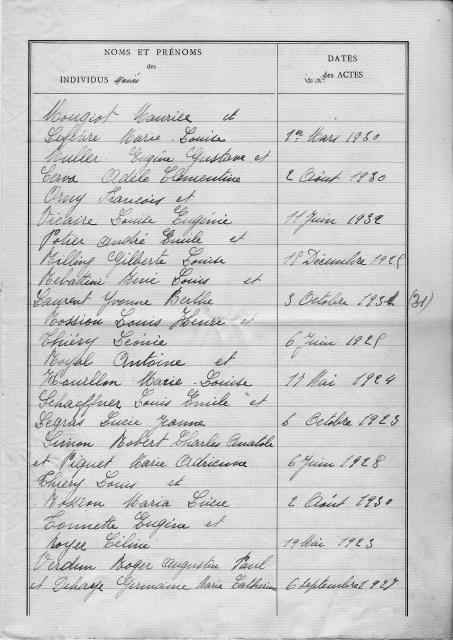 NOMS ET PRÉNOMS
des
INDIVIDUS Mariés
DATES
des ACTES
Mougeot Maurice et
Lefèvre Marie-Louise 1er Mars 1930
Muller Eugène Gustave et
Cerva Adèle Clémentine 2 Août 1930
Orny François et
Vicaire Louise Eugénie 11 Juin 1932
Potier André Emile et
Killing Gilberte Louise 18 Décembre 1925
Rebatteur René Louis et
Laurent Yvonne Berthe 3 Octobre 1931 (31)
Rossion Louis Henri et
Thiéry Léonie 6 Juin 1925
Royal Antoine et
Hourllon Marie-Louise 17 Mai 1924
Schaeffner Louis Emile et
Legras Lucie Jeanne 6 Octobre 1923
Simon Robert Charles Anatole
et Piguet Marie Adrienne 6 Juin 1928
Thiéry Louis et
Rossion Maria Lucie 2 Août 1930
Tonnette Eugène et
Royer Céline 19 Mai 1923
Verdun Roger Augustin Paul
et Dehaye Germaine Marie Catherine 6 septembre 1927